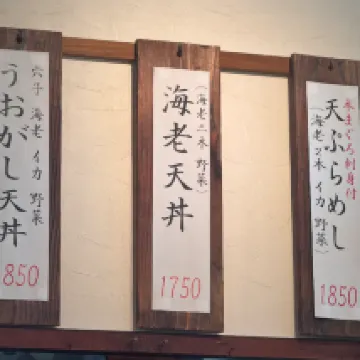 本まぐろ刺身付
天ぷらめし
(海老2本 イカ 野菜)
1850
(海老二本 野菜)
海老天丼
1750
穴子 海老 イカ 野菜
うおがし天丼
850